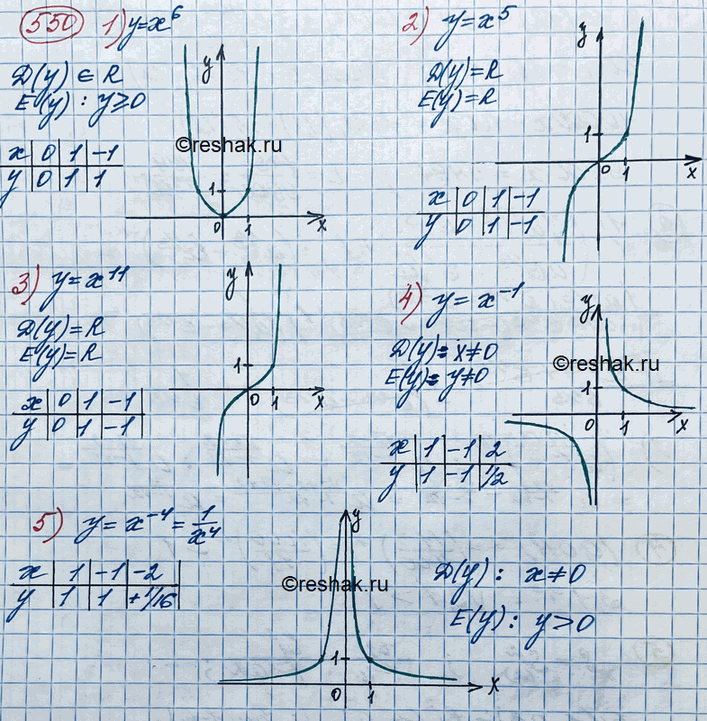 550 1) y=x⁶
D(y) ∈ R
E(y) : y≥0
x | 0 | 1 | -1
y | 0 | 1 | 1
y
1
0 1 x
©reshak.ru
2) y=x⁵
D(y)=R
E(y)=R
x | 0 | 1 | -1
y | 0 | 1 | -1
y
1
0 1 x
3) y=x¹¹
D(y)=R
E(y)=R
x | 0 | 1 | -1
y | 0 | 1 | -1
y
1
0 1 x
4) y=x⁻¹
D(y)= x≠0
E(y)= y≠0
x | 1 | -1 | 2
y | 1 | -1 | 1/2
y
1
0 1 x
©reshak.ru
5) y=x⁻⁴=1/x⁴
x | 1 | -1 | -2
y | 1 | 1 | +1/16
y
1
0 1 x
©reshak.ru
D(y): x≠0
E(y): y>0